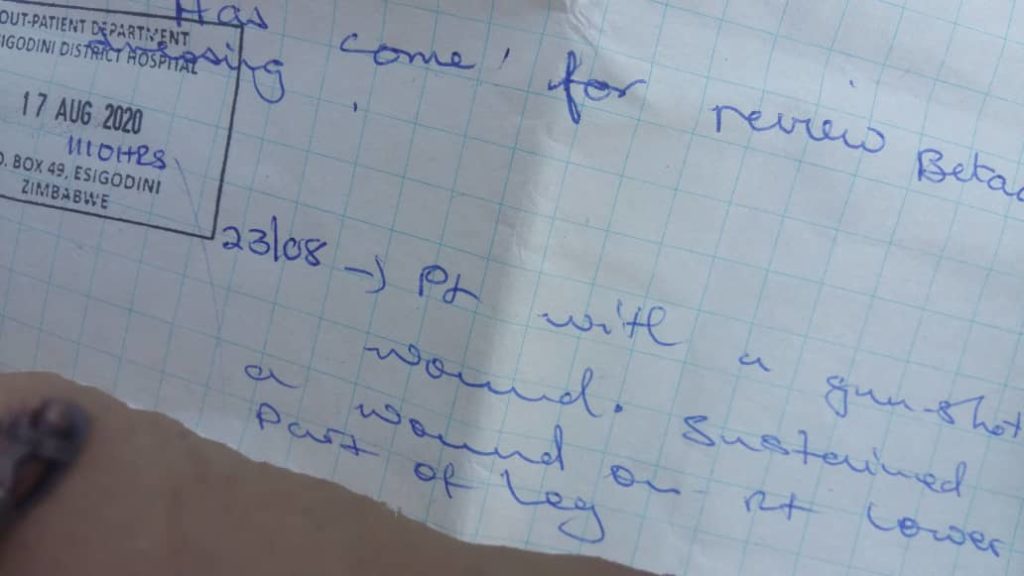 OUT-PATIENT DEPARTMENT
SIGODINI DISTRICT HOSPITAL
17 AUG 2020
1110HRS
O. BOX 49, ESIGODINI
ZIMBABWE
Has come, for review Betad
dressing.
23/08 → Pt with a gunshot
wound. Sustained
a wound on Rt Lower
Part of Leg